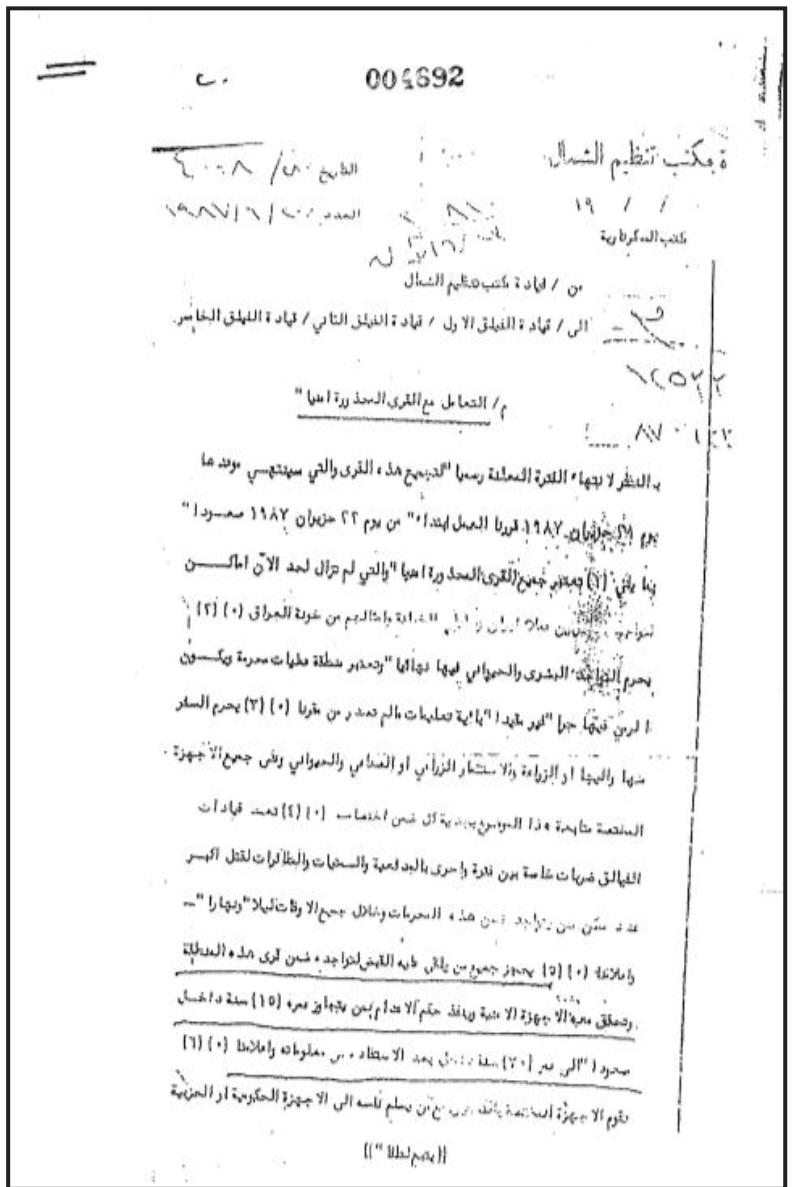 004692
مكتب تنظيم الشمال
التاريخ
١٩ / /
العدد ١٩٨٧/٦/٢٠
مكتب السكرتارية
من / قيادة مكتب تنظيم الشمال
الى / قيادة الفيلق الاول / قيادة الفيلق الثاني / قيادة الفيلق الخامس
م/ التعامل مع القرى المحذورة امنيا "
بالنظر لانتهاء الفترة المعلنة رسميا "لتجميع هذه القرى والتي سينتهي موعدها
يوم حزيران ١٩٨٧ قررنا العمل ابتداء" من يوم ٢٢ حزيران ١٩٨٧ صعودا"
بما يأتي (١) تعتبر جميع القرى المحذورة امنيا "والتي لم تزال لحد الآن اماكـــن
ايران وامثالهم من خونة العراق (٠) (٢)
يحرم التواجد البشرى والحيواني فيها نهائيا "وتعتبر منطقة عمليات محرمة ويكـــون
الرمي فيها حرا "غير مقيدا "بأية تعليمات مالم تصدر من مقرنا (٠) (٣) يحرم السفر
منها واليها او الزراعة والاستثمار الزراعي أو الصناعي والحيواني وعلى جميع الاجهزة
المختصة متابعة هذا الموضوع بجدية كل ضمن اختصاصه (٠) (٤) تعد قيادات
الفيالق ضربات خاصة بين فترة واخرى بالمدفعية والسمتيات والطائرات لقتل اكبـــر
عدد ممكن ممن يتواجد ضمن هذه المحرمات وخلال جميع الاوقات ليلا "ونهارا "ــ
واعلامنا (٠) (٥) يحجز جميع من يلقى عليه القبض لتواجده ضمن قرى هذه المنطقة
وتحقق معه الاجهزة الامنية وينفذ حكم الاعدام بمن يتجاوز عمره (١٥) سنة داخـــل
صعودا "الى عمر (٧٠) سنة داخل بعد الاستفادة من معلوماته واعلامنا (٠) (٦)
تقوم الاجهزة المختصة من يسلم نفسه الى الاجهزة الحكومية او الحزبية
(( يتبع لطفا " ))